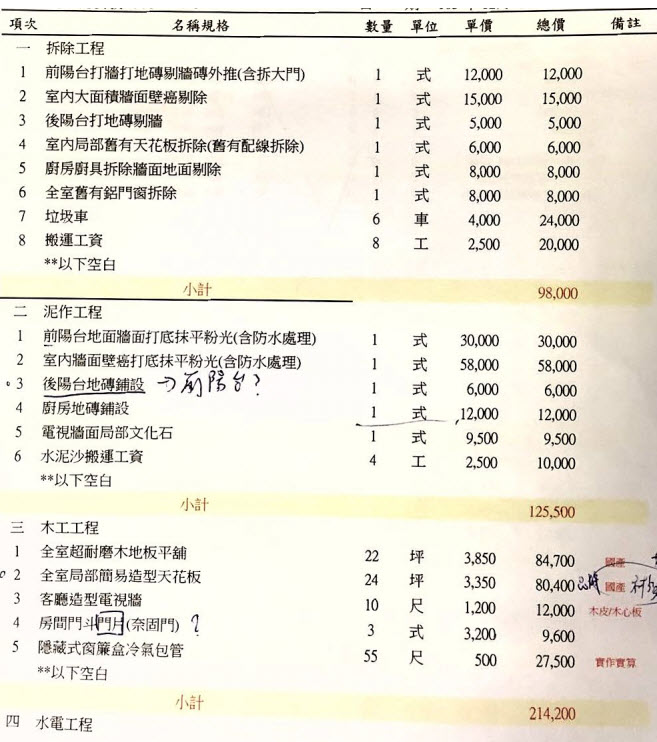 項次 名稱規格 數量 單位 單價 總價 備註
一 拆除工程
1 前陽台打牆打地磚剔牆磚外推(含拆大門) 1 式 12,000 12,000
2 室內大面積牆面壁癌剔除 1 式 15,000 15,000
3 後陽台打地磚剔牆 1 式 5,000 5,000
4 室內局部舊有天花板拆除(舊有配線拆除) 1 式 6,000 6,000
5 廚房廚具拆除牆面地面剔除 1 式 8,000 8,000
6 全室舊有鋁門窗拆除 1 式 8,000 8,000
7 垃圾車 6 車 4,000 24,000
8 搬運工資 8 工 2,500 20,000
**以下空白
小計 98,000
二 泥作工程
1 前陽台地面牆面打底抹平粉光(含防水處理) 1 式 30,000 30,000
2 室內牆面壁癌打底抹平粉光(含防水處理) 1 式 58,000 58,000
3 後陽台地磚鋪設 → 前陽台? 1 式 6,000 6,000
4 廚房地磚鋪設 1 式 12,000 12,000
5 電視牆面局部文化石 1 式 9,500 9,500
6 水泥沙搬運工資 4 工 2,500 10,000
**以下空白
小計 125,500
三 木工工程
1 全室超耐磨木地板平舖 22 坪 3,850 84,700 國產
2 全室局部簡易造型天花板 24 坪 3,350 80,400 國產
3 客廳造型電視牆 10 尺 1,200 12,000 木皮/木心板
4 房間門斗門片(奈固門) ? 3 式 3,200 9,600
5 隱藏式窗簾盒冷氣包管 55 尺 500 27,500 實作實算
**以下空白
小計 214,200
四 水電工程